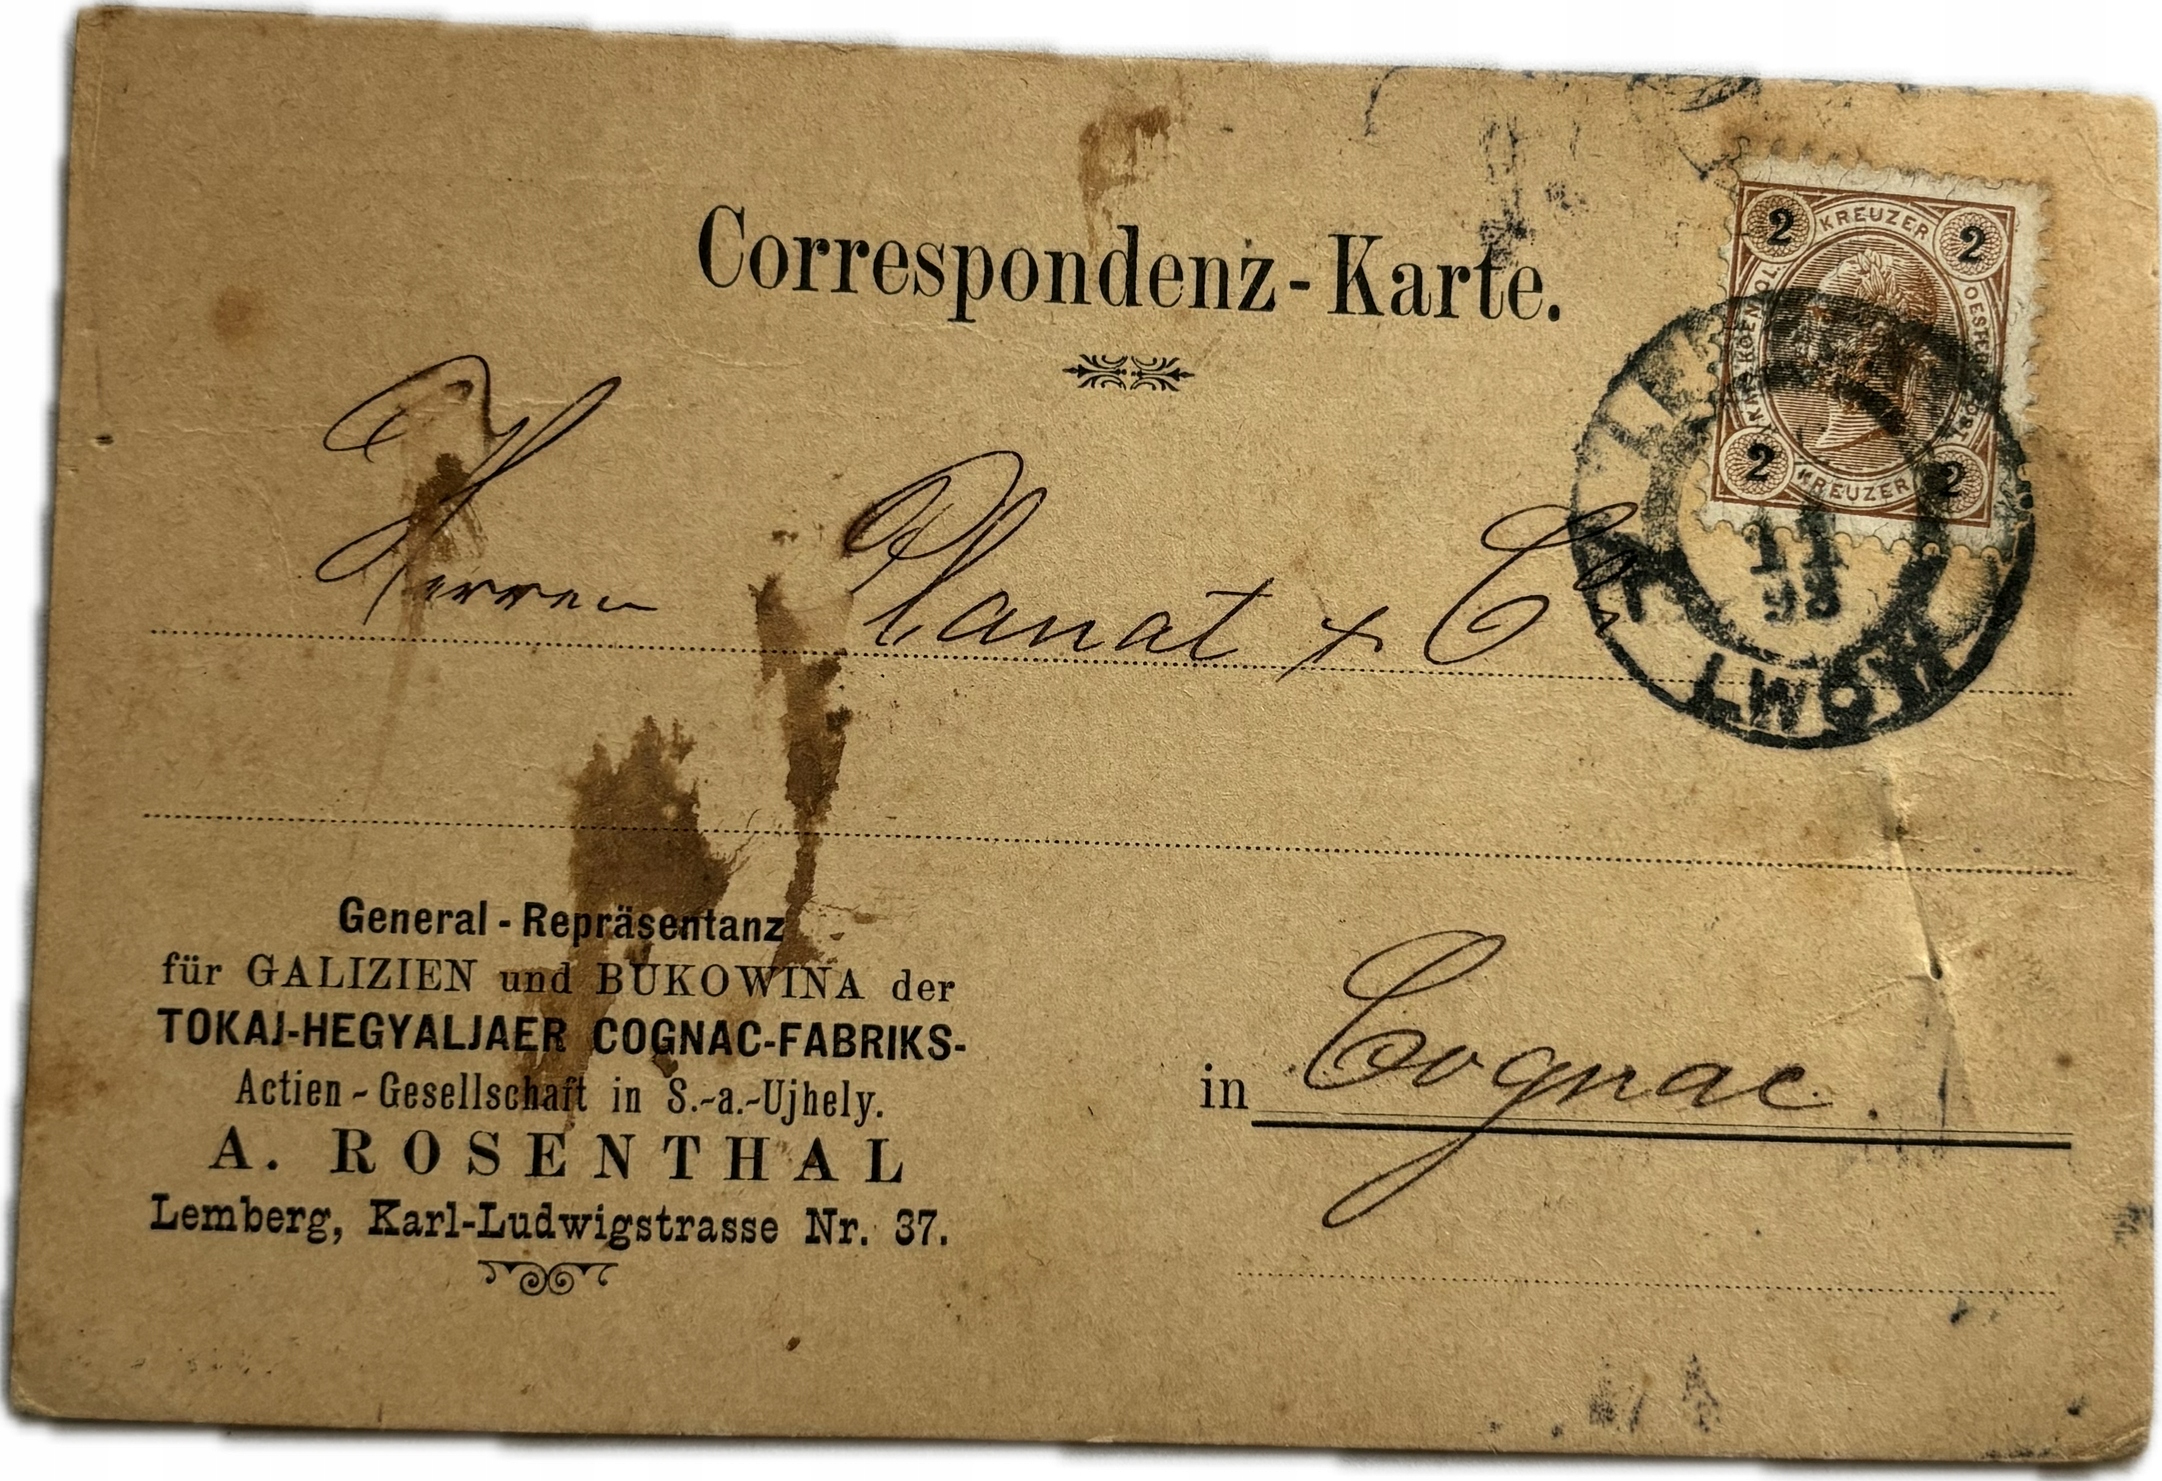 Correspondenz-Karte.
2 KREUZER 2
KAIS. KOENIGL. OESTERR.
2 KREUZER 2
11
98
LWÓW
Herren Planat & Co
General-Repräsentanz
für GALIZIEN und BUKOWINA der
TOKAJ-HEGYALJAER COGNAC-FABRIKS-
Actien-Gesellschaft in S.-a.-Ujhely.
A. ROSENTHAL
Lemberg, Karl-Ludwigstrasse Nr. 37.
in Cognac.